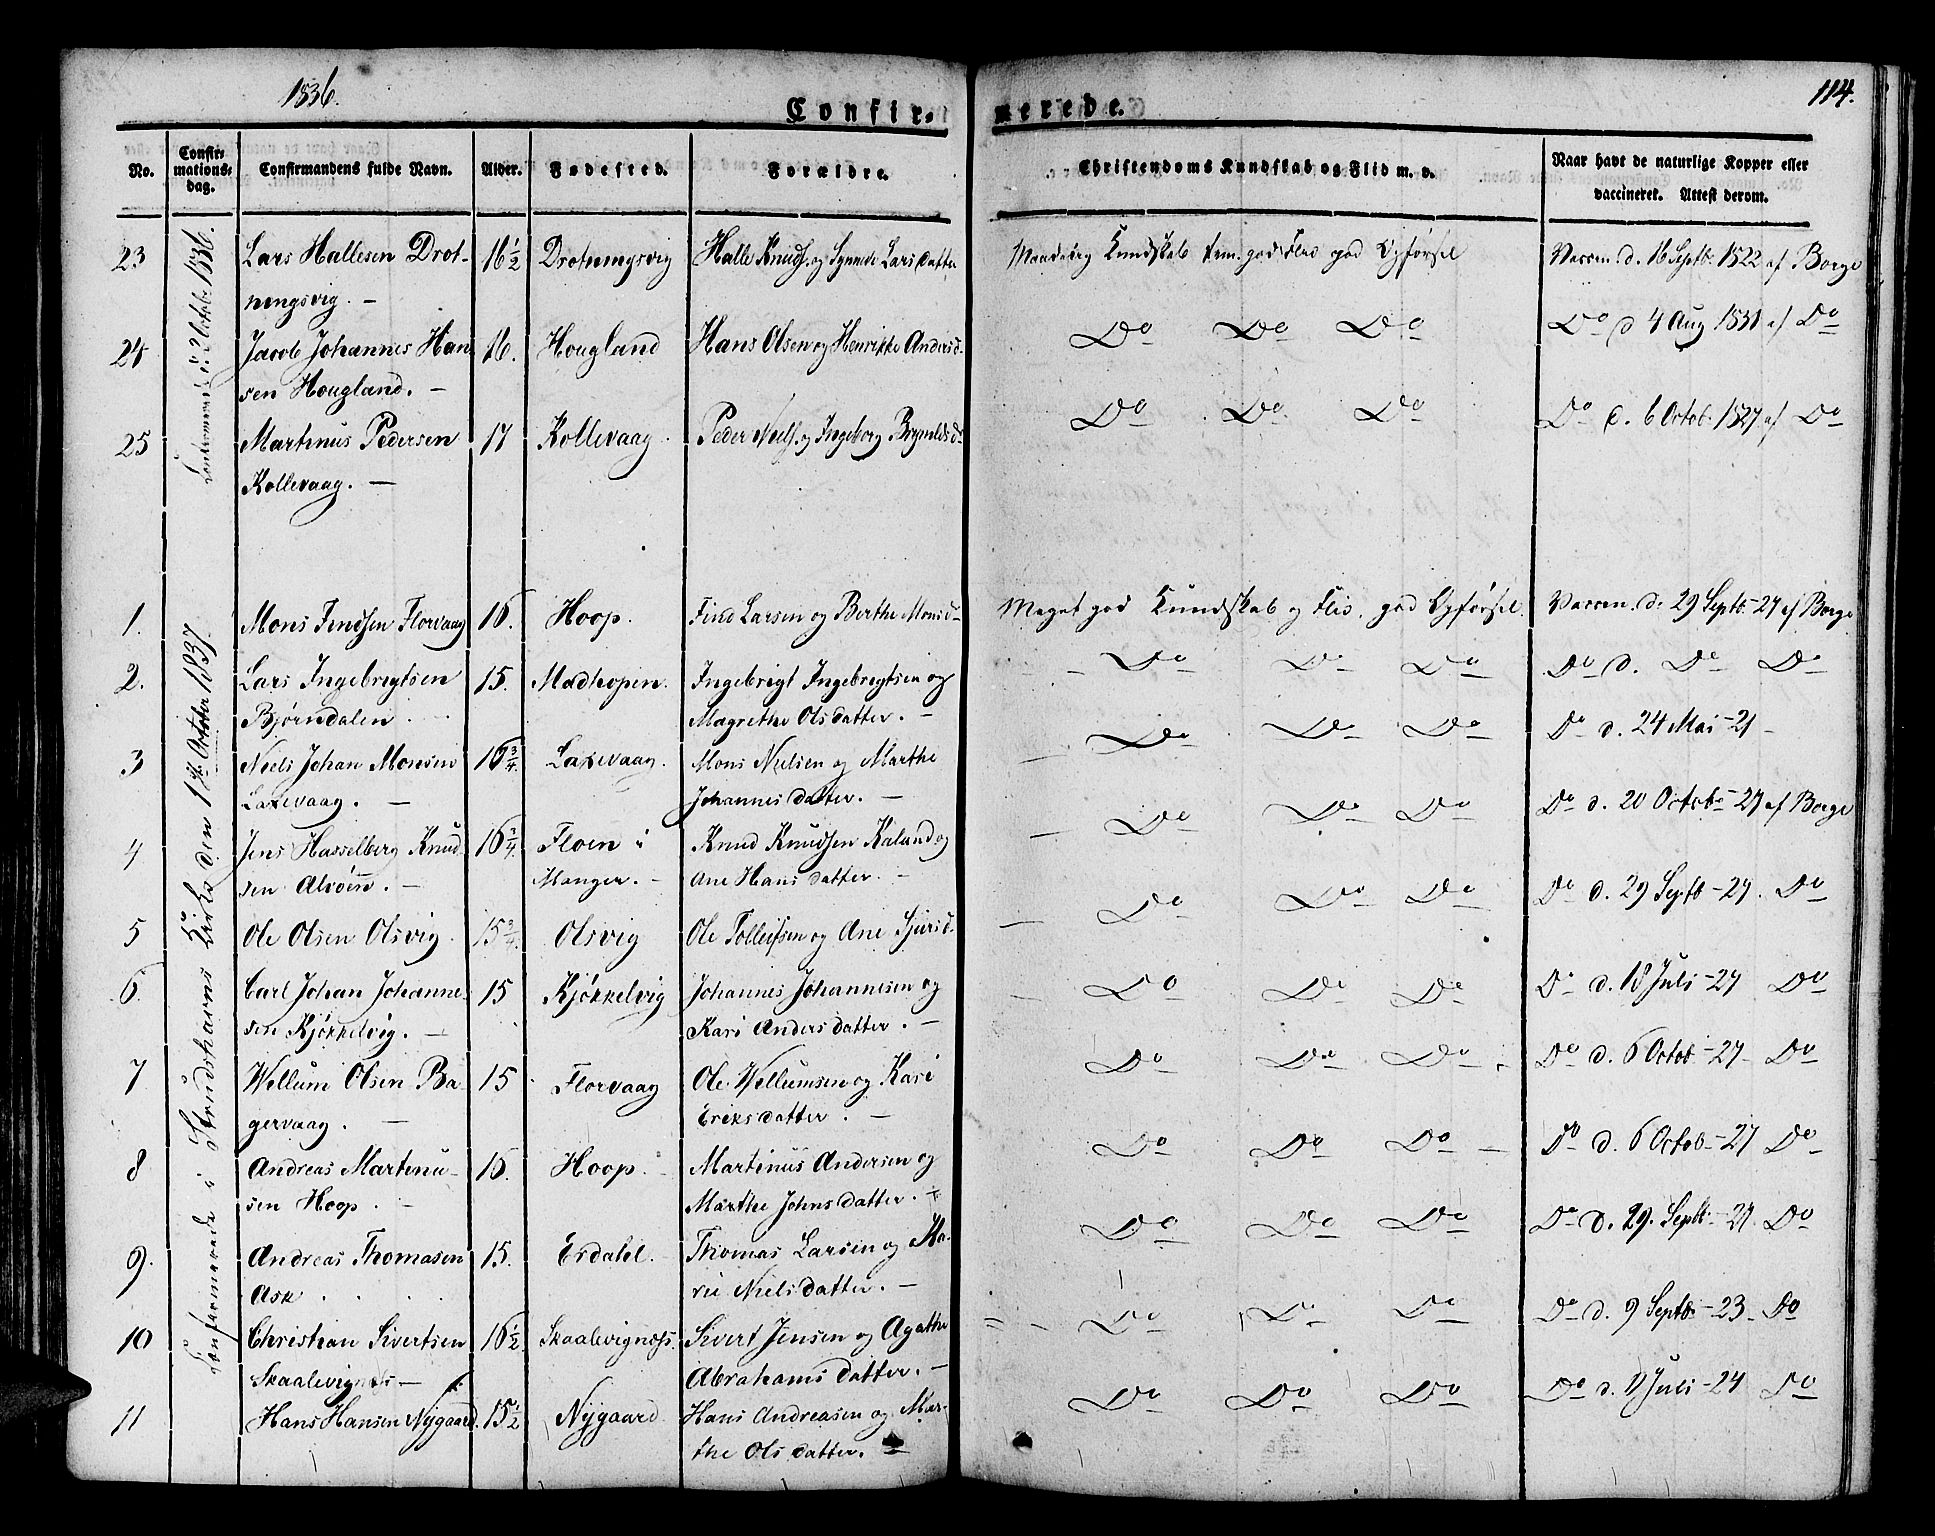 1836.
Confir-
merede.
114.
No.
Confir-
mations-
dag.
Confirmandens fulde Navn.
Alder.
Fødested.
Forældre.
Christendoms Kundskab og Flid m. v.
Naar havt de naturlige Kopper eller
vaccineret. Attest derom.
Confirmerede i 2 Octob: 1836.
23 Lars Hallesen Drot- 16 1/2 Drotningsvig Halle Knuds. og Synneve Larsdatter Maadelig Kundskab god Flid god Opførsel Vaccin. d. 16 Septb: 1822 af Borge
ningsvig. -
24 Jacob Johannes Han 16. Hougland Hans Olsen og Henrikke Andersd. Do Do Do Do d 4 Aug 1831 af Do
sen Hougland. -
25 Martinus Pedersen 17 Kollevaag. Peder Niels. og Ingeborg Brynildsd- Do Do Do Do d. 6 Octob. 1827 af Do
Kollevaag. -
Confirmerede i Strudshavns Kirke den 1ste October 1837.
1. Mons Findsen Florvaag 16. Hoop. Find Larsen og Berthe Monsd- Meget god Kundskab og Flid. god Opførsel. Vaccin. d. 29 Septb.-27 af Borge
2. Lars Ingebregtsen 15. Madhopen. Ingebrigt Ingebregtsen og - Do Do Do Do d. Do Do
Bjørndalen. Magrethe Olsdatter. -
3 Niels Johan Monsen 16 3/4. Laxevaag. Mons Nielsen og Marthe - Do Do Do Do d. 24 Mai-21-
Laxevaag. - Johannesdatter. -
4 Jens Hasselberg Knud- 16 3/4. Floen i Knud Knudsen Kaland og - Do Do Do Do d. 20 Octob-27 af Borge
sen Alvøen. - Manger. - Ane Hansdatter. -
5 Ole Olsen Olsvig. 15 3/4. Olsvig Ole Tollefsen og Ane Sjursd. - Do Do Do Do d. 29 Septb-27. Do
6 Carl Johan Johanne- 15 Kjøkkelvig Johannes Johannesen og - Do Do Do Do d. 18 Juli-27 Do
sen Kjøkkelvig. - Kari Andersdatter. -
7 Wellum Olsen Ba- 15 Florvaag Ole Wellumsen og Kari Do Do Do Do d. 6 Octob-27- Do
gervaag. - Eriksdatter. -
8 Andreas Martinu- 15. Hoop. Martinus Andersen og Do Do Do - Do d. 6 Octob-27 Do
sen Hoop. Marthe Johnsdatter. -
9. Andreas Thomasen 15. Erdahl. Thomas Larsen og Ma- Do Do Do Do d. 29. Septb-27. Do
Ask rie Nielsdatter. -
10 Christian Sivertsen 16 1/2 Skaalevignæs. Sivert Jensen og Agathe Do Do Do Do d. 9 Septb-23- Do
Skaalevignæs- Abrahamsdatter. -
11 Hans Hansen Nygaard. 15 1/2 Nygaard Hans Andreasen og Mar- Do Do Do Do d. Juli-24 Do
the Olsdatter. -